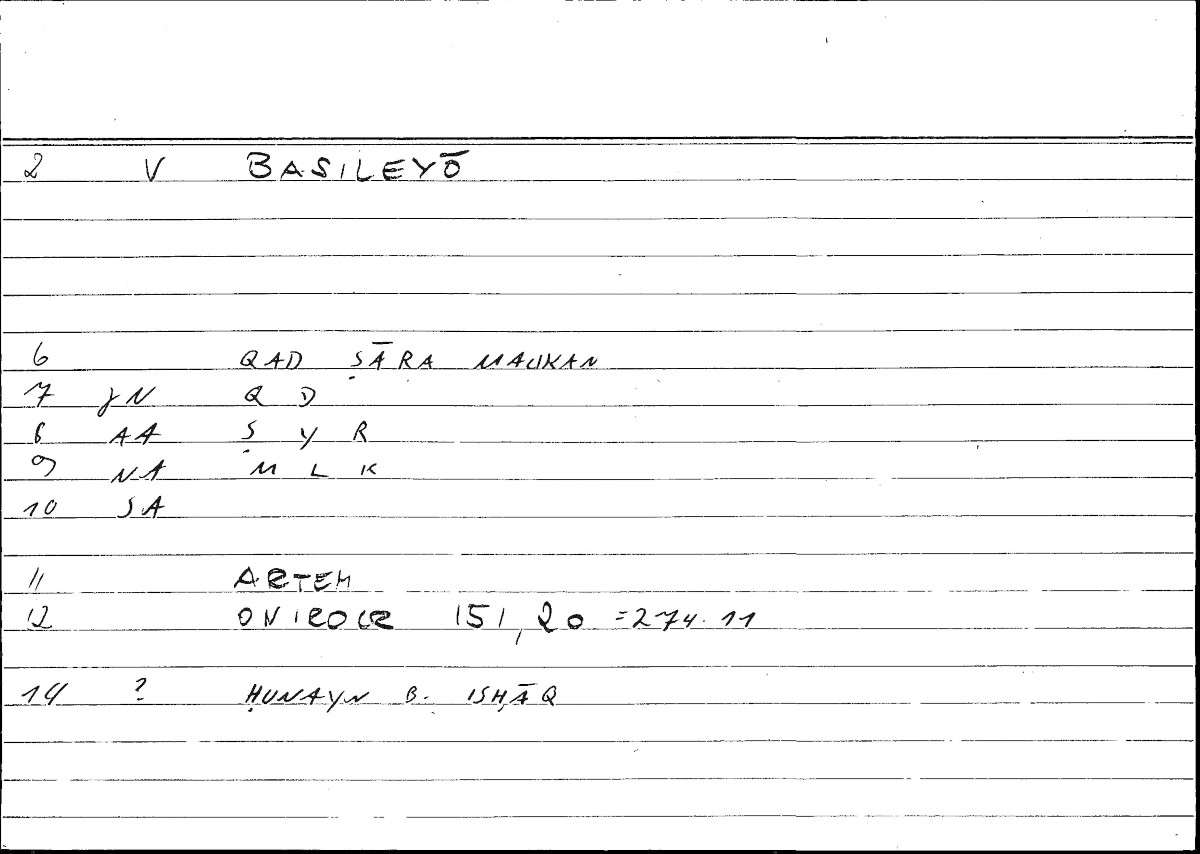 2 V BASILEYŌ
6 QAD ṢĀRA MALIKAN
7 JN Q D
8 AA Ṣ Y R
9 NA M L K
10 SA
11 ARTEM
12 ONIROCR 151,20 =274.11
14 ? ḤUNAYN B. ISḤĀQ